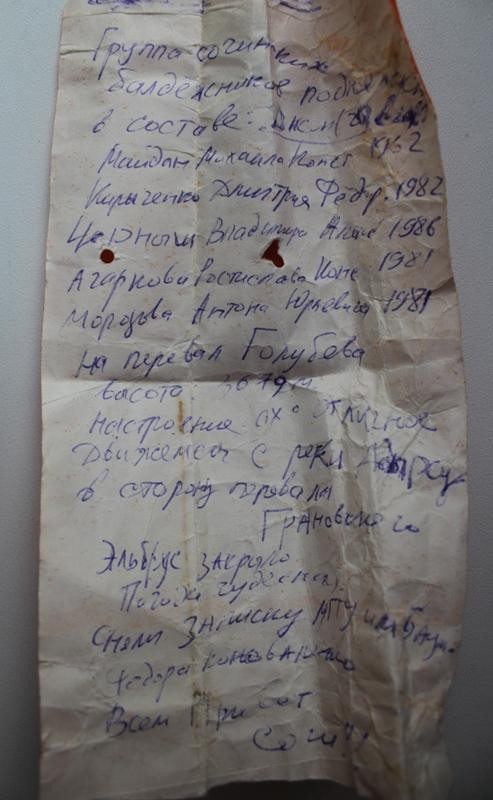 Группа сочинских
балдёжников поднялась
в составе:
1962
Майдан Михаила Конст
Кириченко Дмитрия Фёдр. 1982
Черныш Владимира 1986
Агаркова Ростислава Конс 1981
Морозова Антона Юрьевича 1981
На перевал Голубева
высота 3679м
настроение отличное
Движемся с реки
в сторону перевала
Грановского
Эльбрус закрыло
Погода чудесная.
Сняли записку МГУ или
Фёдора Коноваленко
Всем Привет
Сочи!!